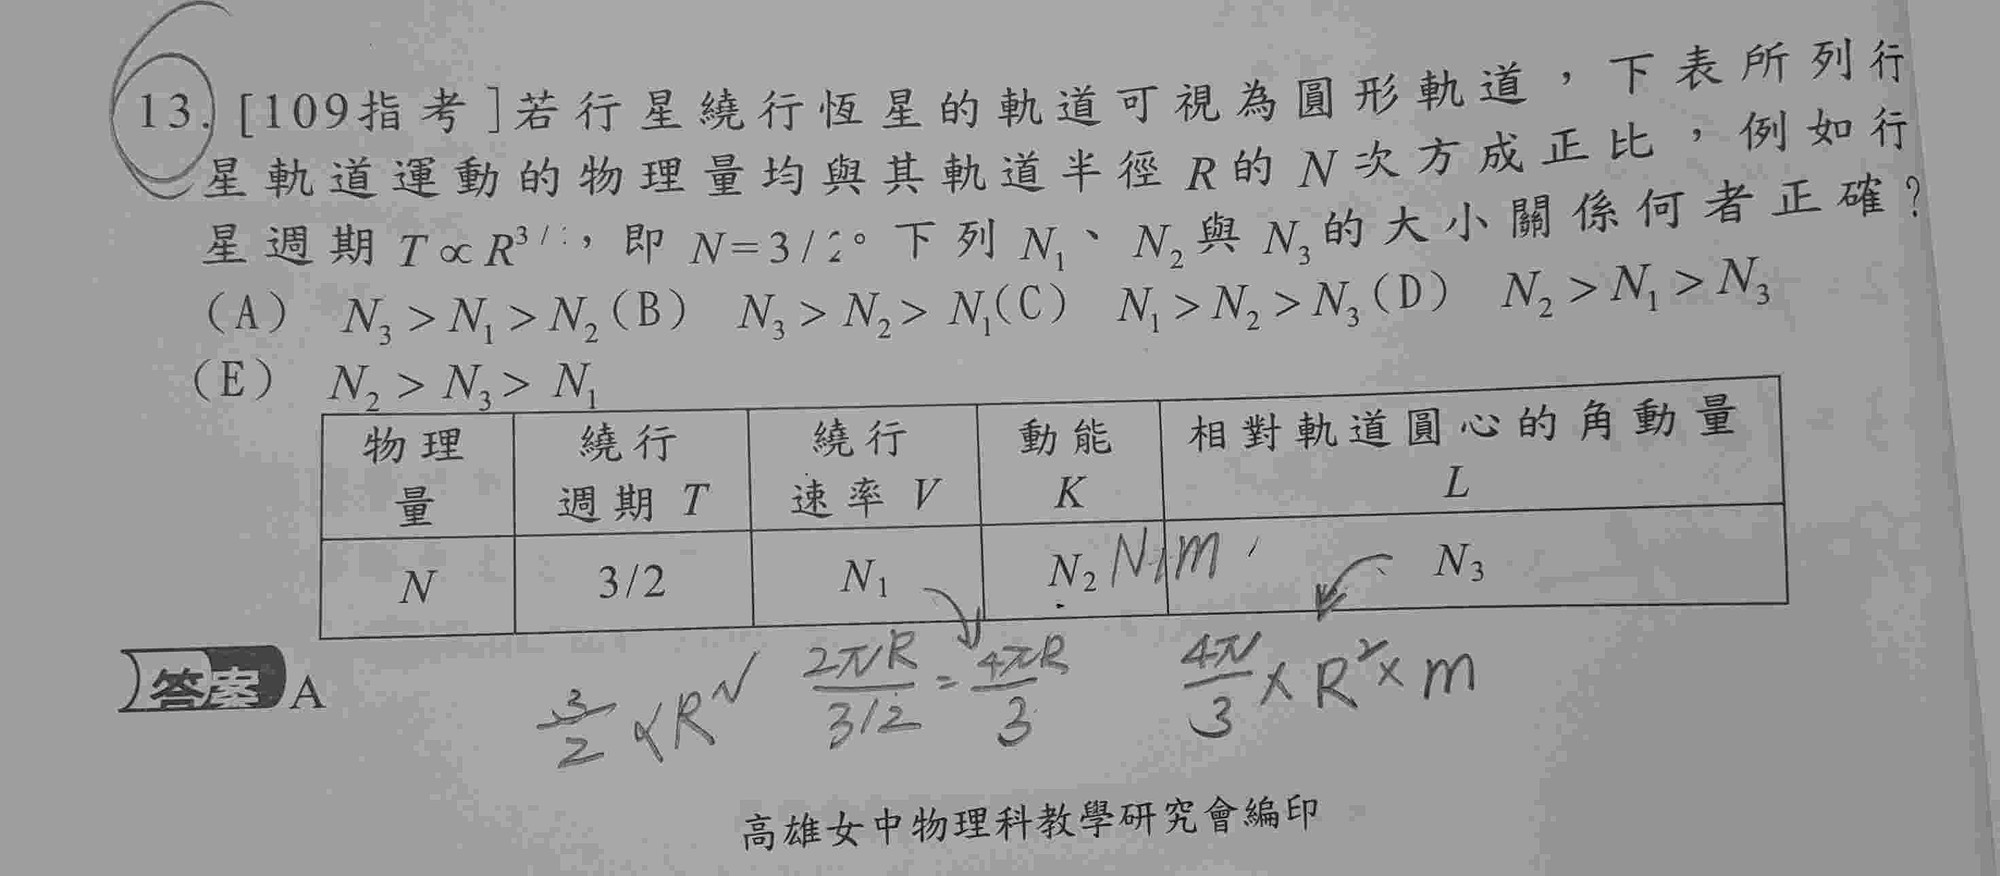 13. [109指考]若行星繞行恆星的軌道可視為圓形軌道,下表所列行
星軌道運動的物理量均與其軌道半徑 R 的 N 次方成正比,例如行
星週期 T ∝ R^3/2,即 N=3/2。下列 N₁、N₂與 N₃的大小關係何者正確?
(A) N₃ > N₁ > N₂ (B) N₃ > N₂ > N₁ (C) N₁ > N₂ > N₃ (D) N₂ > N₁ > N₃
(E) N₂ > N₃ > N₁
物理量 繞行週期 T 繞行速率 V 動能 K 相對軌道圓心的角動量 L
N 3/2 N₁ N₂ N₁m N₃
答案 A
3/2 ∝ R^N 2πR/(3/2) = 4πR/3 4π/3 × R² × m
高雄女中物理科教學研究會編印